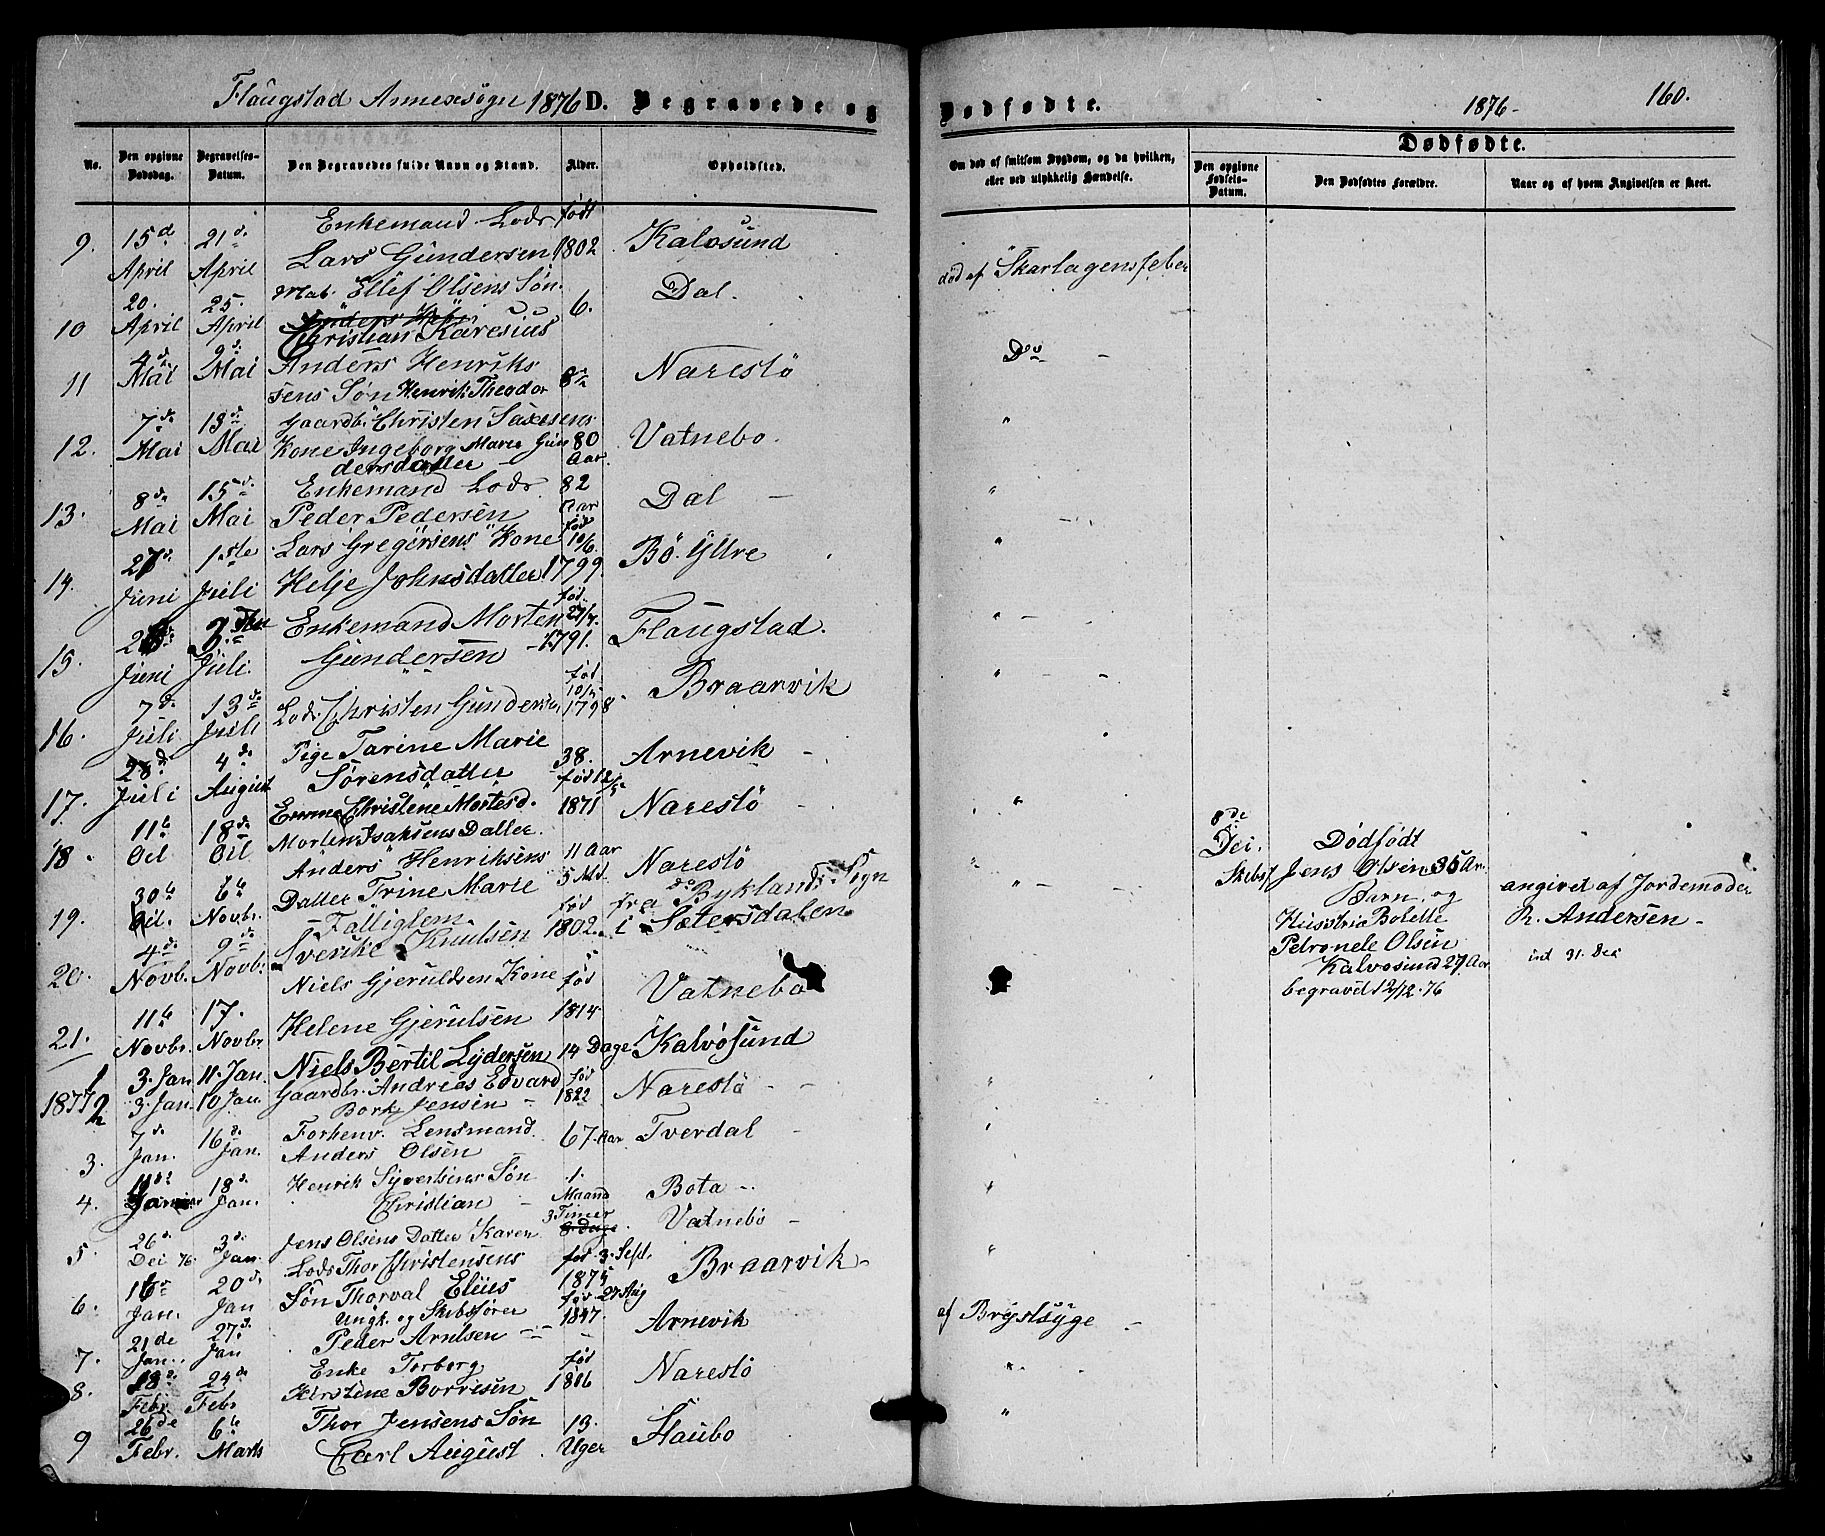 Flaugstad Annexsogn 1876 D. Begravede og
No.
Den opgivne Dødsdag.
Begravelses-Datum.
Den Begravedes fulde Navn og Stand.
Alder.
Opholdsted.
9. 15d April 21 d. April Enkemand Lods Lars Gundersen født 1802 Kalvøsund
10 20. April 25. April Mat. Ellef Olsens Søn Christian Karesius 6. Dal.
11 4 d. Mai 9 d. Mai Anders Henriks
sens Søn Henrik Theodor 8 Narestö
12. 7 de Mai 13 d. Mai Gaardbr. Christen Saxesens
Kone Ingeborg Maria Gun
dersdatter 80 Aar. Vatnebo.
13. 8 de Mai 15 de Mai Enkemand Lods
Peder Pedersen 82 Aar Dal -
14. 27 d. Juni 1ste Juli Lars Gregersens Kone
Helje Johnsdatter fød 10/6. 1799 Bö. Yttre
15. Juni Juli. Enkemand Morten
Gundersen fød. 27/7. 1791. Flaugstad.
16. 7 de Juli. 13 de Juli Lods Christen Gundersen fød 1798 Braarvik
17. 28 d Juli 4 de August Pige Tarine Marie
Sørensdatter 38. Arnevik -
18. 11 te Oct 18 de Oct Emma Christene Mortesd.
Morten Isaksens Datter. fød 12/5 1871 Narestö -
19. 30 te Oct. 6 te Novbr. Anders Henriksens
Datter Trine Marie 11 Aar 5 Md. Narestö
20. 4 de Novb. 9 de Novb. Fattiglem
Sverike Knutsen fød 1802. fra Byklands Sogn
i Sætersdalen
21. 11 te Novbr. 17. Novbr. Niels Gjeruldsen Kone
Helene Gjerulsen fød 1814. Vatnebo
1877 1 3. Jan 11. Jan. Niels Bertil Lydersen 14 Dage Kalvøsund
2 3. Jan. 10 Jan. Gaardbr. Andreas Edvard
Bork Jensen - fød 1822 Narestö - -
3. 7 de Jan. 16 d. Jan. Forhenv. Lensmand
Anders Olsen 67 Aar Tverdal -
4. 11 18 d. Jan. Henrik Syvertsens Søn
Christian - 1. Maaned Bota -
5 26 d. Dec 76. 3 d. Jan. Jens Olsens Datter Karen 3 Timer 8 Dage. Vatnebo -
6. 16 d Jan. 20 d. Jan Lods Thor Christensens
Søn Thorval Elius fød 3. Sept. 1875 Braarvik -
7. 21 de Jan. 27 d. Jan Ungk. og Skibsfører
Peder Arntsen fød 27 Aug 1847. Arnevik
8. 18 d. Febr. 24 de Febr Enke Torborg
Kirstine Borrisen fød 1816 Narestö
9 26 de Febr. 6 te Marts Thor Jensens Søn
Carl August 13. Uger Staubo
Dødfødte. 1876- 160.
Dødfødte.
Om død af smitsom Sygdom, og da hvilken,
eller ved ulykkelig Hændelse.
Den opgivne Fødsels-Datum.
Den Dødfødtes Forældre.
Naar og af hvem Angivelsen er skeet.
død af Skarlagensfeber
Do -
8 de Dec.
Dødfødt
Skibsf. Jens Olsen 35 Ar.
Barn og
Husstru Bolette
Petronele Olsen
Kalvøsund 27 Aar
begravet 12/12. 76
angivet af Jordemoder
R. Andersen -
int 31. Dec
af Brystsyge -